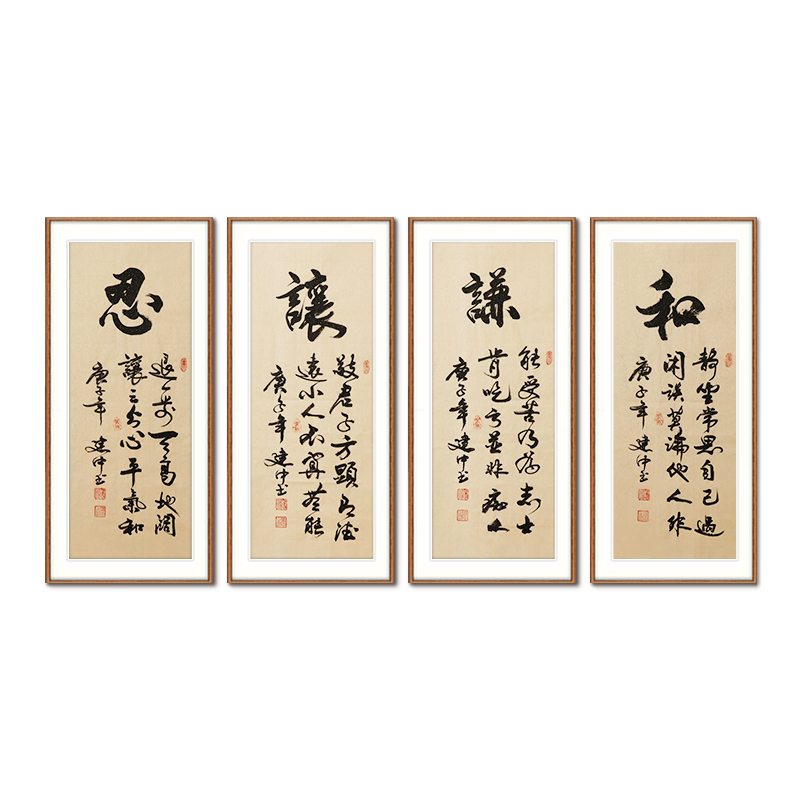 忍
退一步天高地阔
讓三分心平氣和
庚子年 建中书
讓
敬君子方顕有德
遠小人不算無能
庚子年 建中书
謙
能受苦乃為志士
肯吃亏並非痴人
庚子年 建中书
和
靜坐常思自己過
闲談莫論他人非
庚子年 建中书